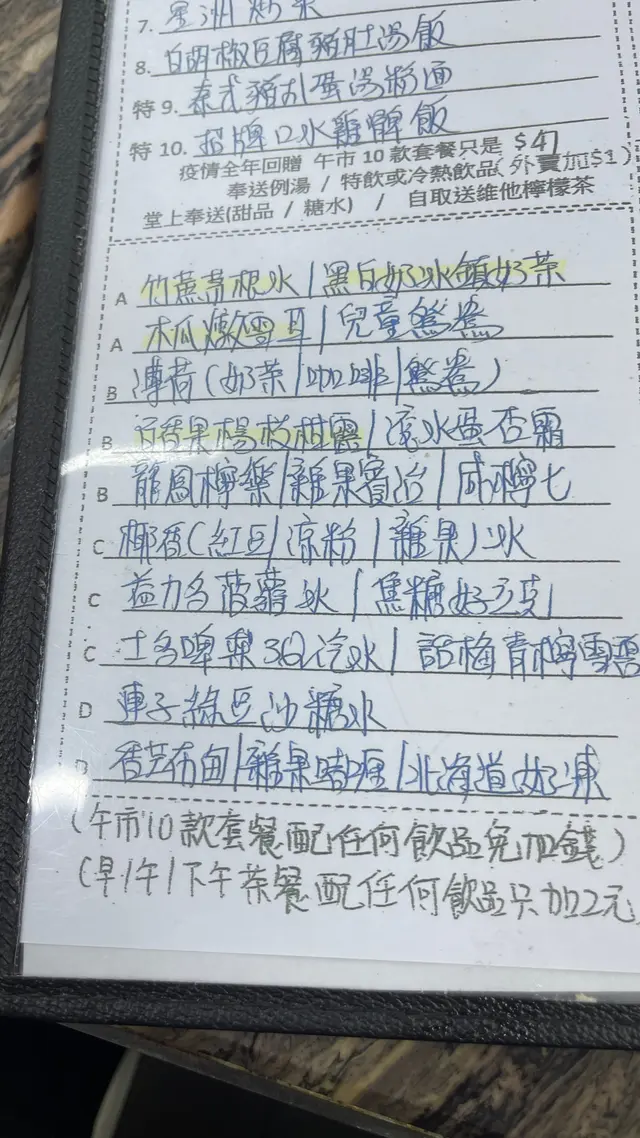 7. 星洲炒米
8. 白胡椒豆腐豬肚湯飯
特 9. 泰式豬扒蛋湯粉通
特 10. 招牌口水雞髀飯
疫情全年回贈 午市 10 款套餐只是 $47
奉送例湯 / 特飲或冷熱飲品(外賣加$1)
堂上奉送(甜品 / 糖水) / 自取送維他檸檬茶
A 竹蔗茅根水/黑白奶冰鎮奶茶
A 木瓜燉雪耳/兒童鴛鴦
B 薄荷(奶茶/咖啡/鴛鴦)
B 百香果楊枝柑露/滾水蛋杏霜
B 龍鳳檸樂/雜果賓治/咸檸七
C 椰香(紅豆/涼粉/雜果)冰
C 益力多菠蘿冰/焦糖好立克
C 士多啤梨3Q汽水/話梅青檸雪
D 蓮子綠豆沙糖水
D 香芒布甸/雜果啫喱/北海道奶凍
(午市10款套餐配任何飲品免加錢)
(早/午/下午茶餐配任何飲品只加2元